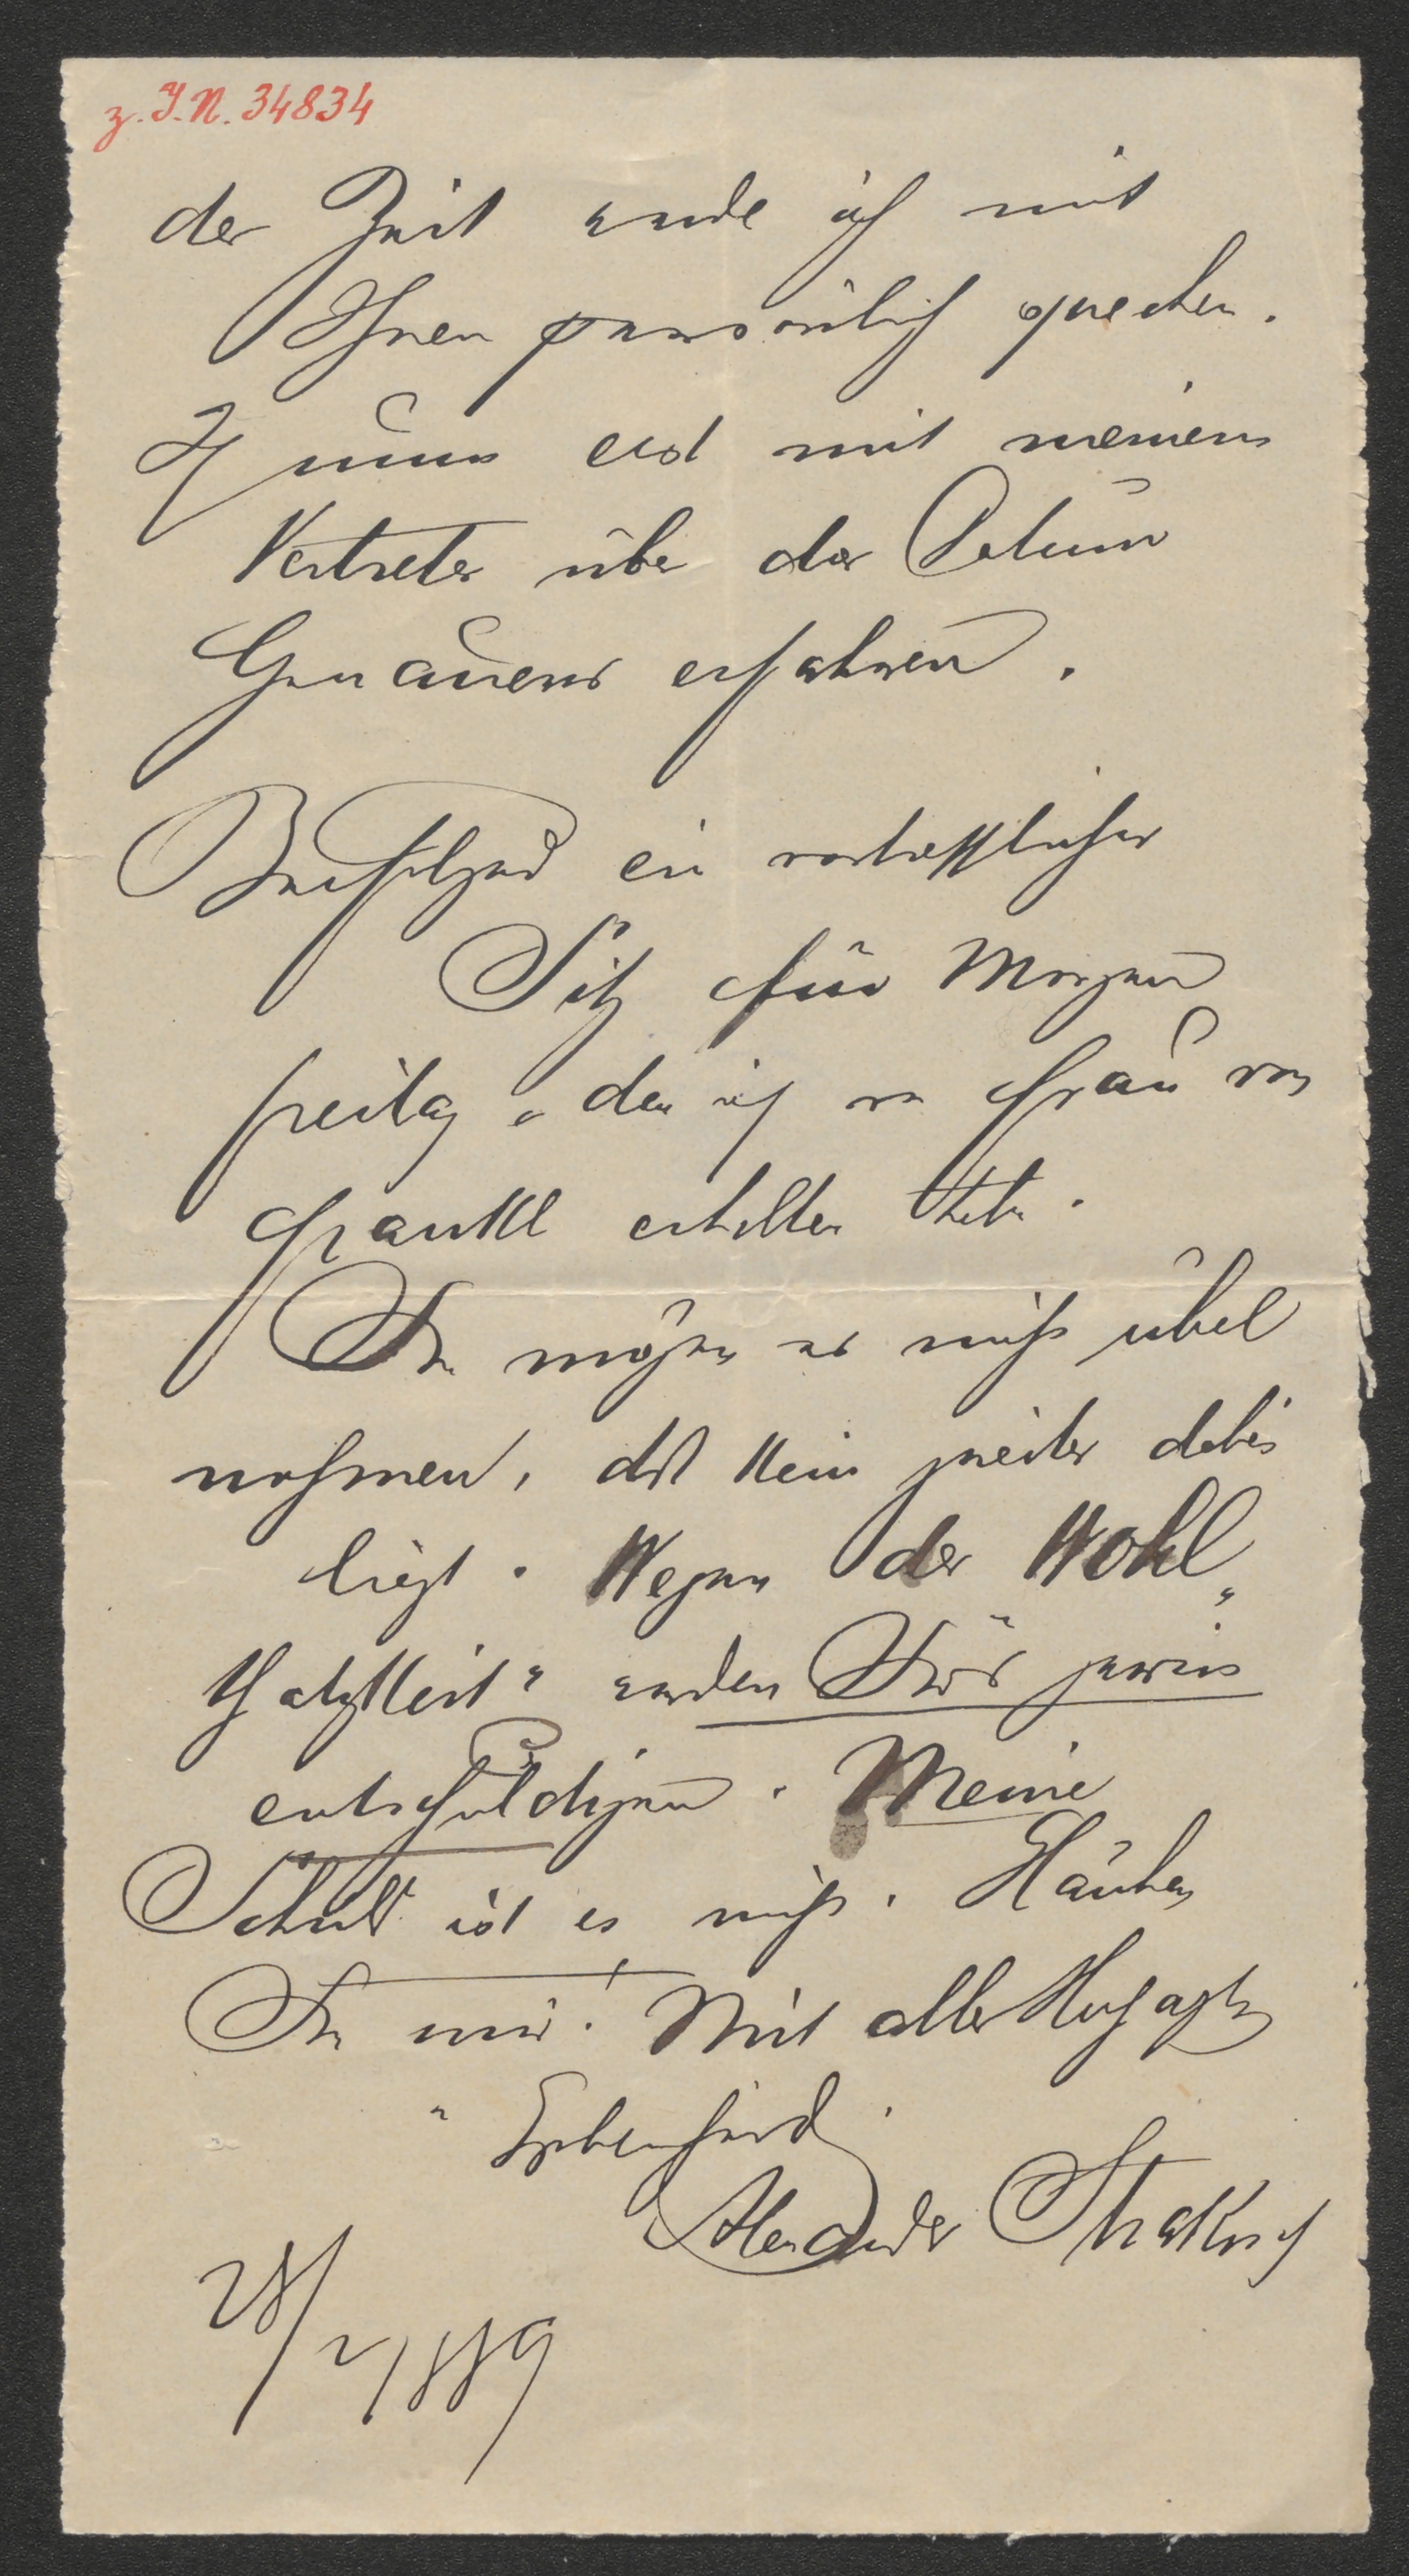 z. I.N. 34834
der Zeit werde ich mit
Ihnen persönlich sprechen.
Ich muss erst mit meinem
Vertreter über das Datum
Genaueres erfahren.
Beifolgend ein vortrefflicher
Sitz für Morgen
Freitag, den ich von Frau von
Frankl erhalten habe.
Sie mögen es nicht übel
nehmen, daß kein zweiter dabei
liegt. Wegen der Wohl„
thätigkeit" werden Sie's gewiss
entschuldigen. Meine
Schuld ist es nicht. Glauben
Sie mir! Mit aller Hochachtg
Ergebenheit
Alexander Strakosch
28/2 1889